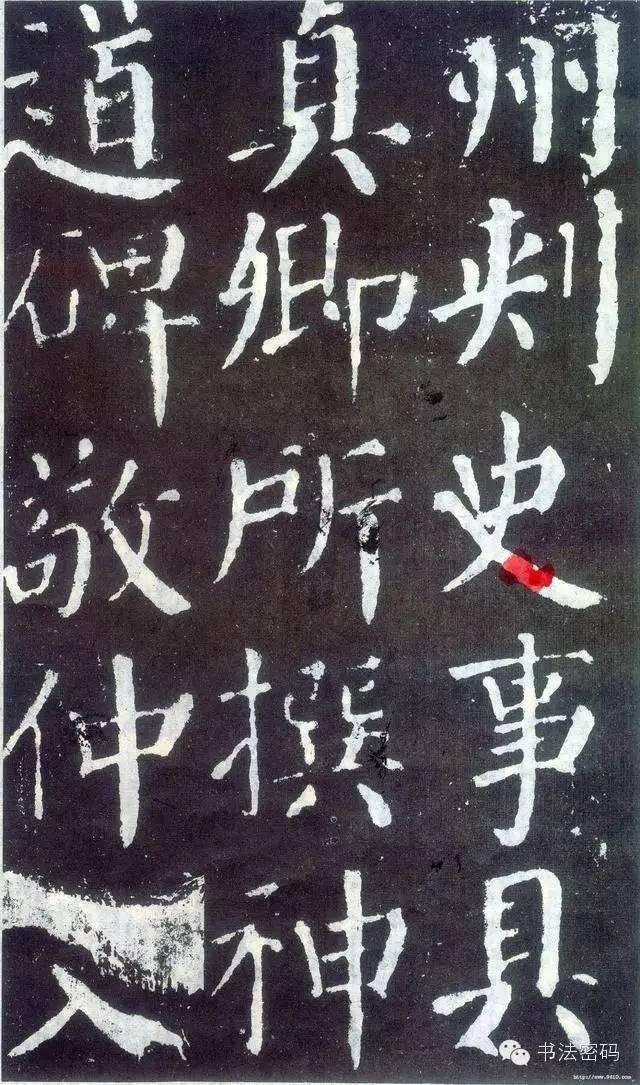 州刺史事具
真卿所撰神
道碑敬仲入
书法密码
http://www.9610.com